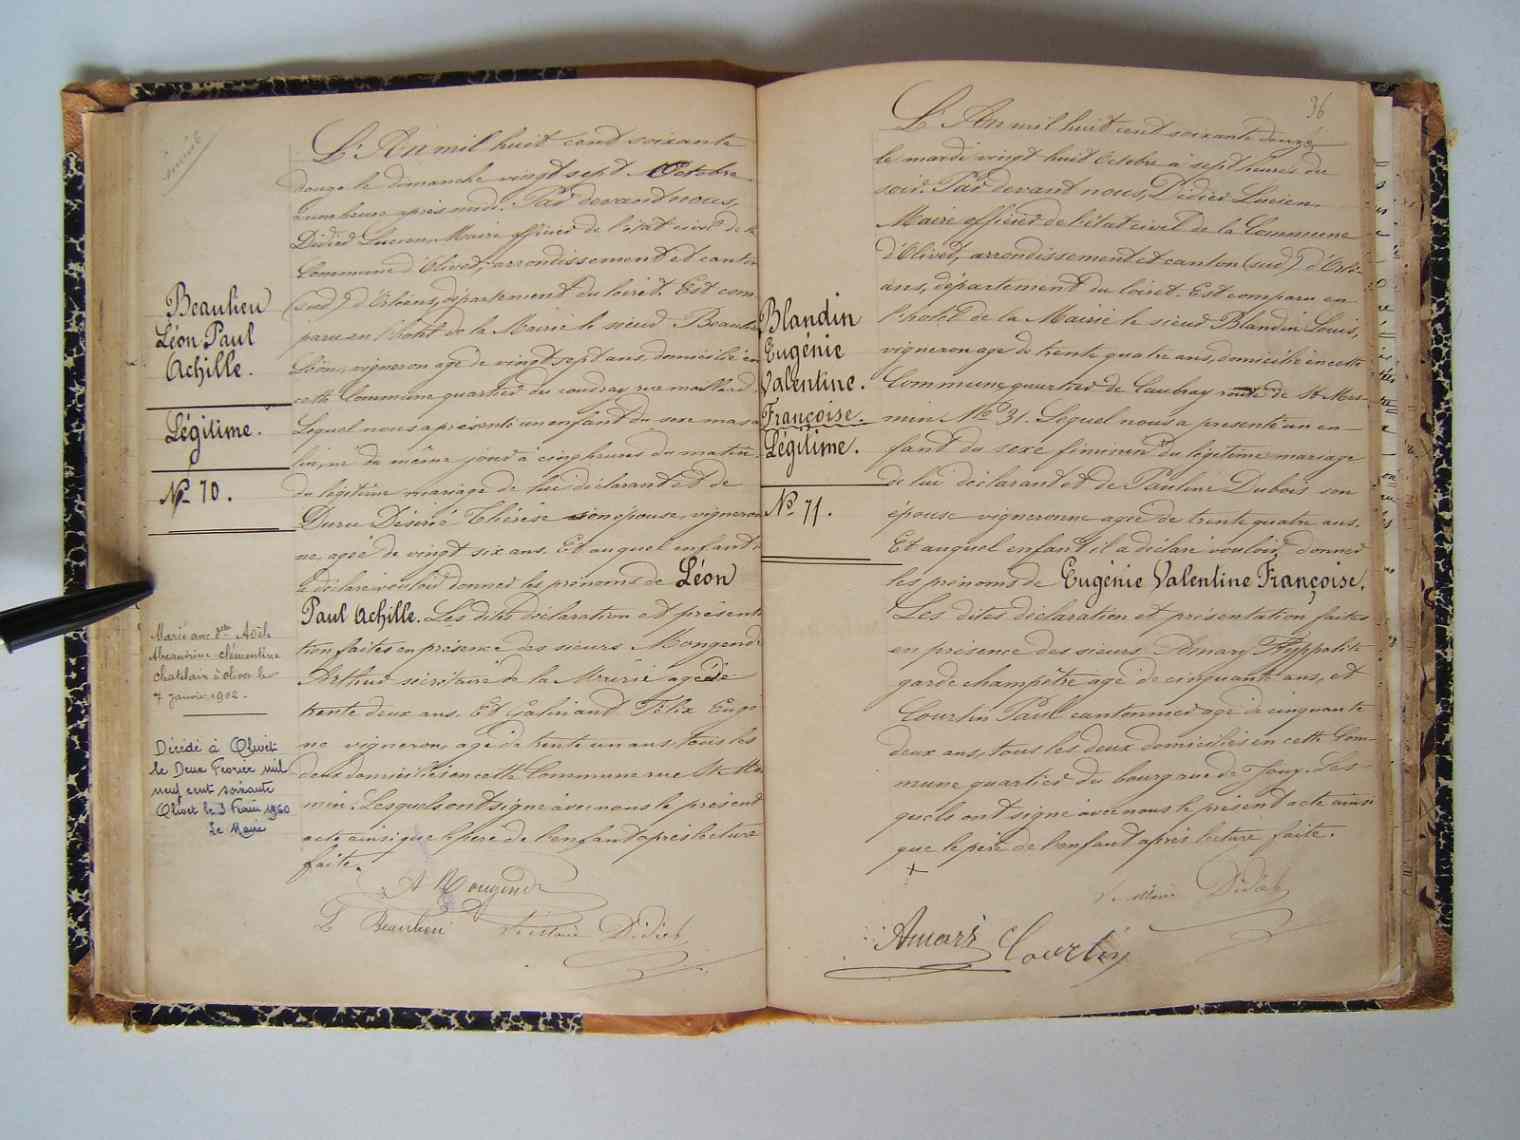 L'An mil huit cent soixante
douze le dimanche vingt sept Octobre
à une heure après midi. Par devant nous,
Didier Lucien Maire officier de l'état civil de la
Commune d'Olivet, arrondissement et canton
(sud) d'Orléans, département du loiret. Est com
paru en l'hotel de la Mairie le sieur Beaulieu
Léon, vigneron agé de vingt sept ans, domicilié en
cette Commune quartier du coudray rue
Lequel nous a présenté un enfant du sexe mas
culin, né du même jour à cinq heures du matin
du légitime mariage de lui déclarant et de
Duru Désirée Thérèse son épouse, vigneron
ne agée de vingt six ans. Et auquel enfant il
a déclaré vouloir donner les prénoms de Léon
Paul Achille. Les dites déclaration et présenta
tion faites en présence des sieurs Mongendr
Arthur sécrétaire de la Mairie agé de
trente deux ans. Et Galinand Félix Eugè
ne vigneron, agé de trente un ans, tous les
deux domiciliés en cette Commune rue St Mes
min. Lesquels ont signé avec nous le présent
acte ainsi que le père de l'enfant après lecture
faite.
A Mougendr
L Beaulieu Le Maire Didier
Beaulieu
Léon Paul
Achille.
Légitime.
No 70.
Marié avec Dlle Adèle
Alexandrine clémentine
chatelain à olivet le
7 janvier 1902.
Décédé à Olivet
le Deux Février mil
neuf cent soixante
Olivet le 3 1960
Le Maire
36
L'An mil huit cent soixante douze,
le mardi vingt huit Octobre à sept heures du
soir. Par devant nous, Didier Lucien
Maire officier de l'état civil de la Commune
d'Olivet, arrondissement et canton (sud) d'Orlé-
ans, département du loiret. Est comparu en
l'hotel de la Mairie le sieur Blandin Louis,
vigneron agé de trente quatre ans, domicilié en cette
Commune, quartier de Caubray route de St Mes-
min No 31. Lequel nous a présenté un en-
fant du sexe féminin du légitime mariage
de lui déclarant et de Pauline Dubois son
épouse vigneronne agée de trente quatre ans.
Et auquel enfant il a déclaré vouloir donner
les prénoms de Eugénie Valentine Françoise.
Les dites déclaration et présentation faites
en présence des sieurs Amary Hyppolite
garde champêtre agé de cinquante ans, et
Courtin Paul cantonnier agé de cinquante
deux ans, tous les deux domiciliés en cette Com-
mune quartier du bourg rue de Jouy. Les-
quels ont signé avec nous le présent acte ainsi
que le père de l'enfant après lecture faite.
Le Maire Didier
Amary Courtin
Blandin
Eugénie
Valentine.
Françoise.
Légitime.
No 71.